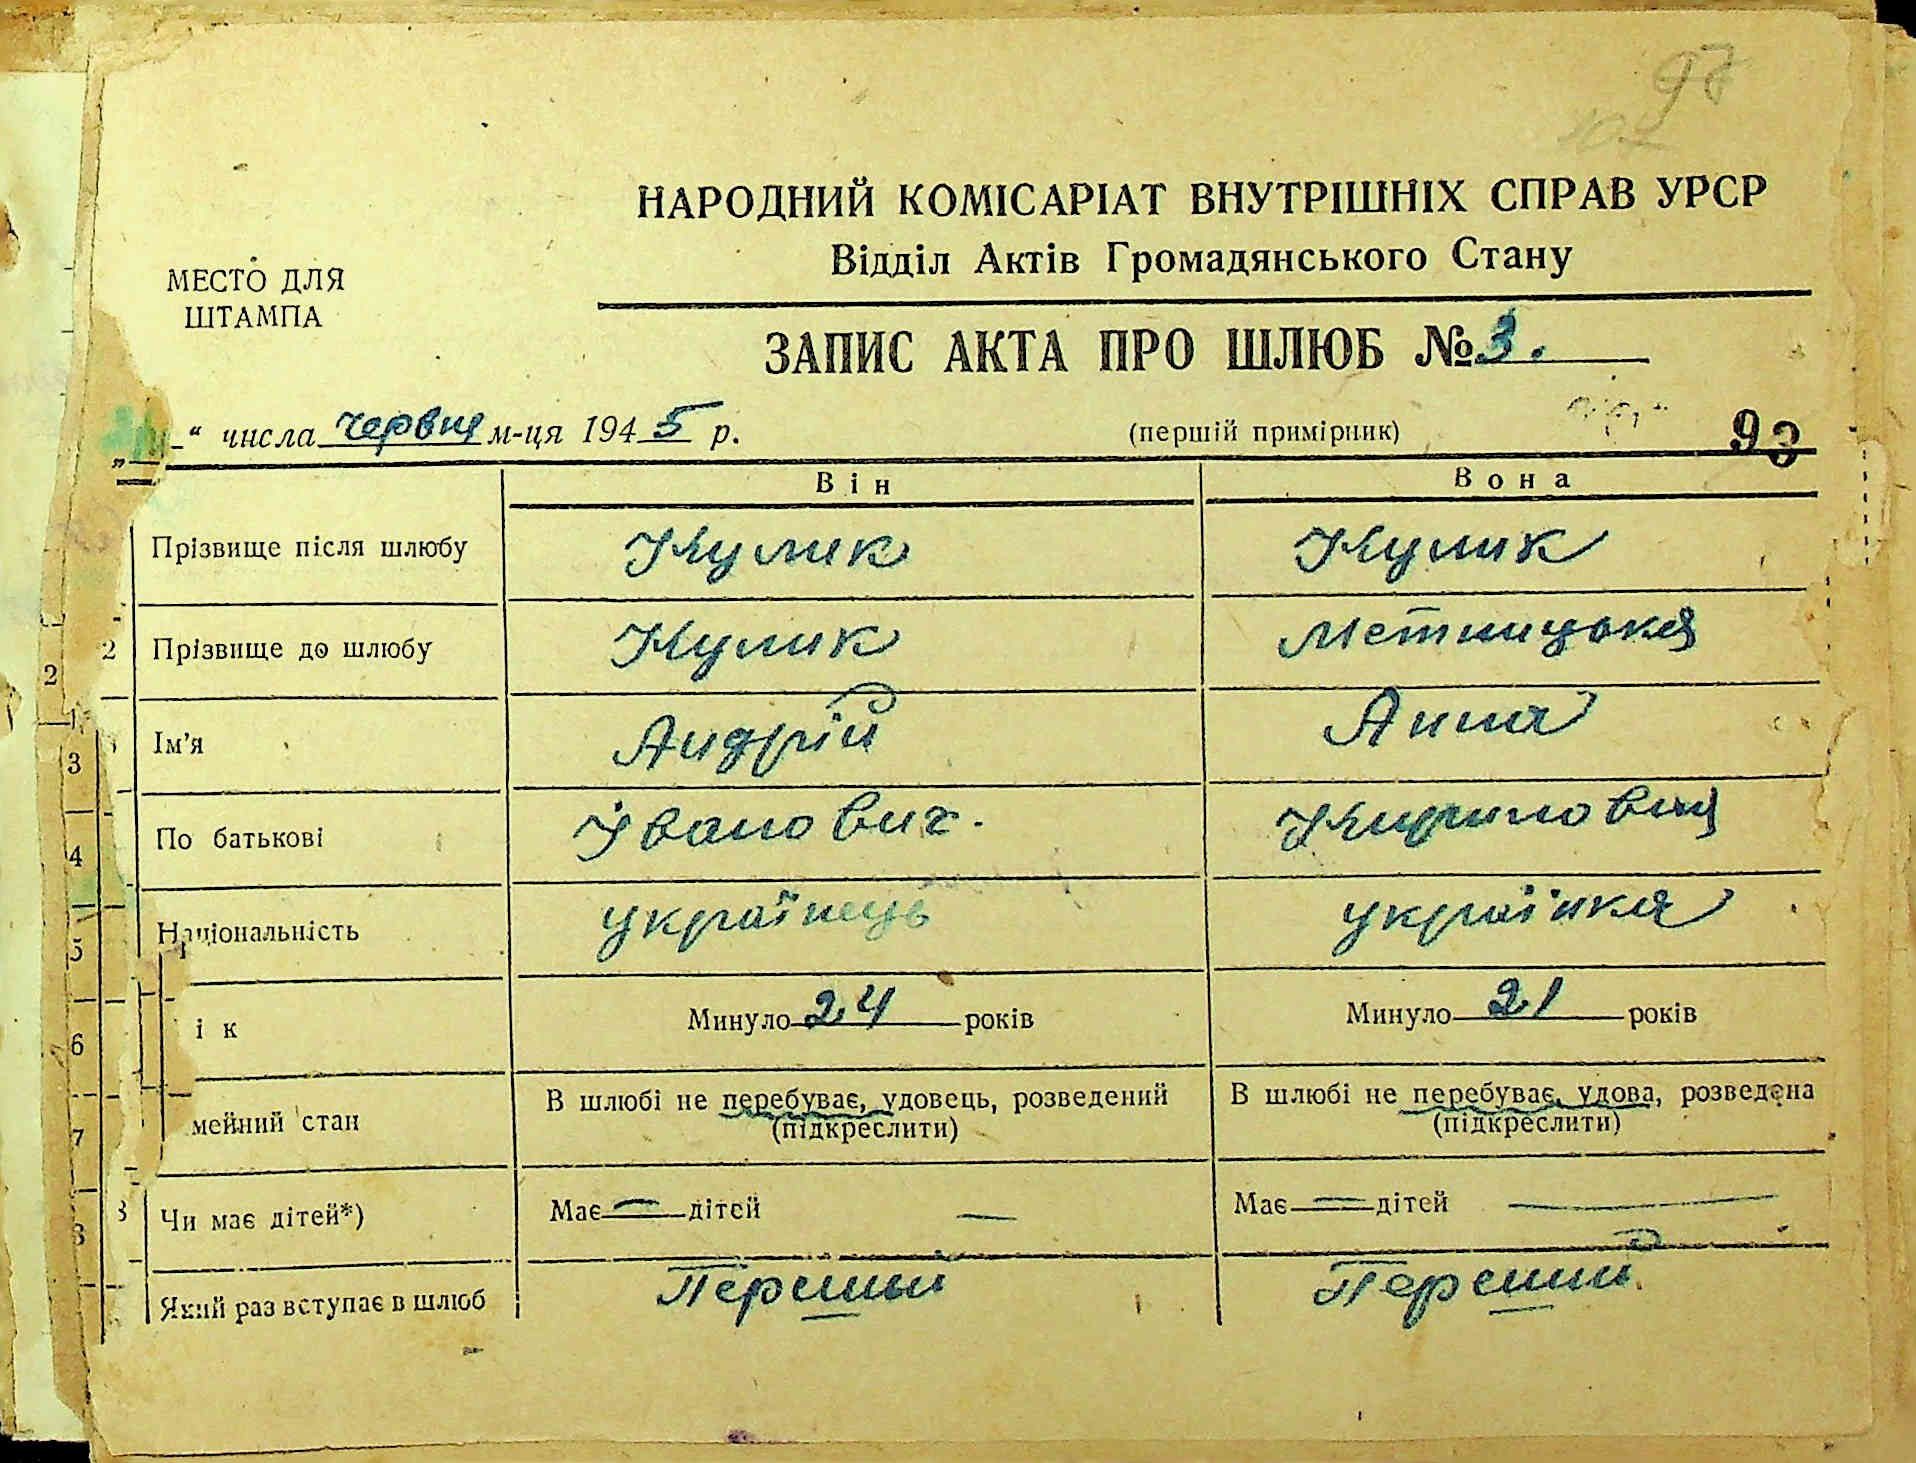 97
102
НАРОДНИЙ КОМІСАРІАТ ВНУТРІШНІХ СПРАВ УРСР
Відділ Актів Громадянського Стану
МЕСТО ДЛЯ
ШТАМПА
ЗАПИС АКТА ПРО ШЛЮБ № 3.
“ числа червня м-ця 1945 р.
(першій примірник)
93
Він
Вона
Прізвище після шлюбу Кулик Кулик
2 Прізвище до шлюбу Кулик Метницька
Ім'я Андрій Анна
По батькові Іванович. Кириловна
Національність українець українка
ік Минуло 24 років Минуло 21 років
мейний стан В шлюбі не перебуває, удовець, розведений В шлюбі не перебуває, удова, розведена
(підкреслити) (підкреслити)
Чи має дітей*) Має — дітей — Має — дітей —
Який раз вступає в шлюб Перший Перший
2
3
4
5
6
7
8